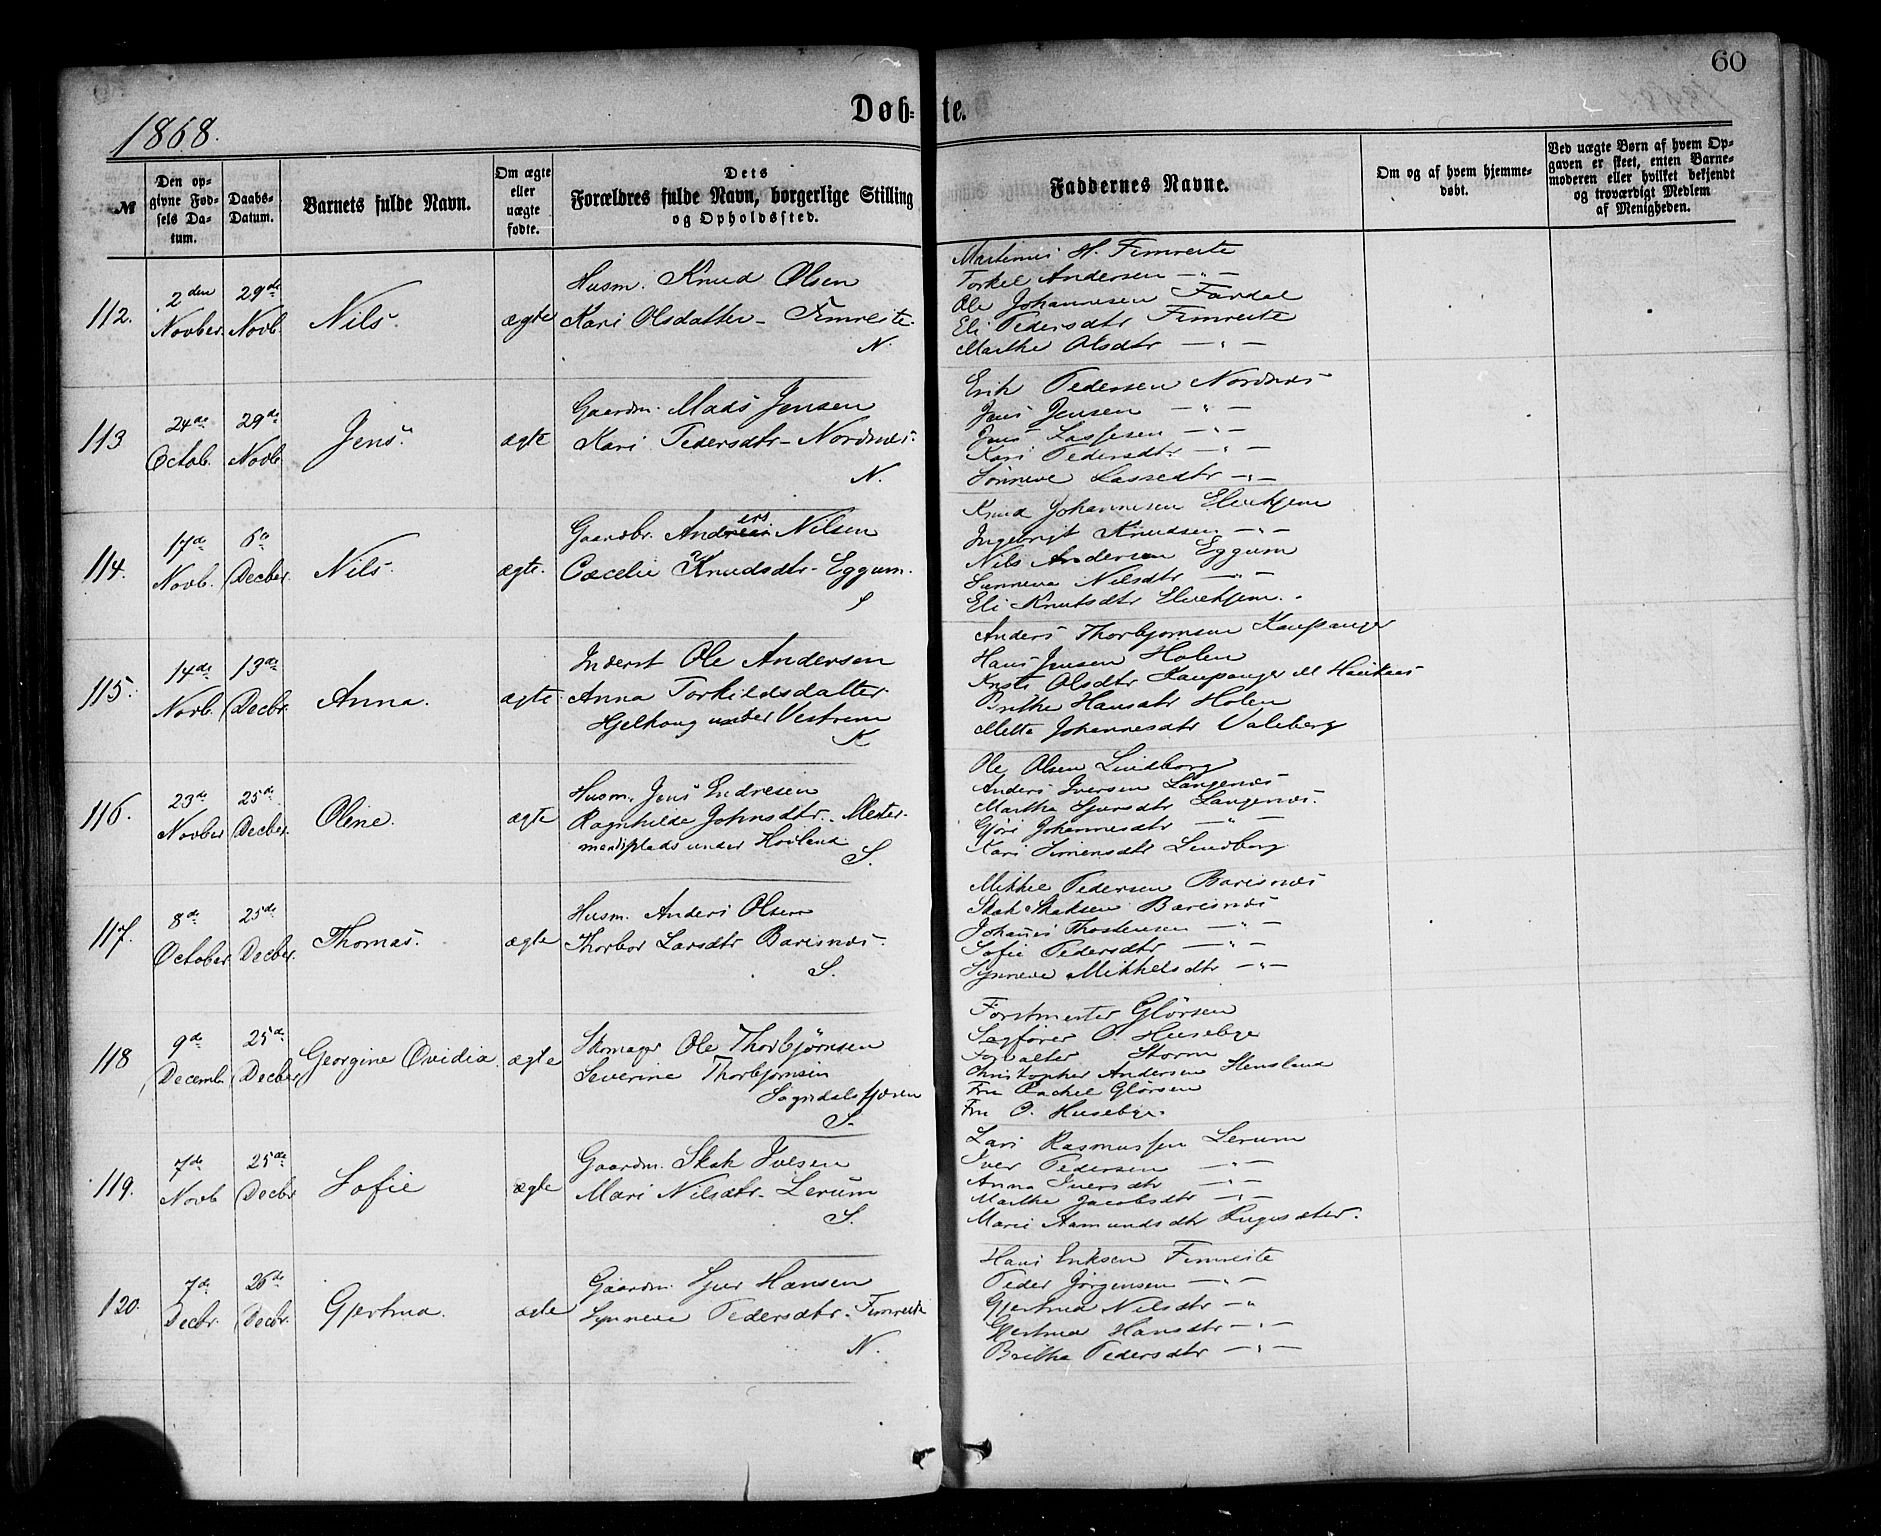 60
1868.
Døb-
te.
№
Den op-
givne Fød-
sels Da-
tum.
Daabs-
Datum.
Barnets fulde Navn.
Om ægte
eller
uægte
fødte.
Dets
Forældres fulde Navn, borgerlige Stilling
og Opholdssted.
Faddernes Navne.
Om og af hvem hjemme-
døbt.
Ved uægte Børn af hvem Op-
gaven er skeet, enten Barne-
moderen eller hvilket bekjendt
og troværdigt Medlem
af Menigheden.
112.
2den
Novber
29de
Novb.
Nils.
ægte
Husm. Knud Olsen
Kari Olsdatter - Fimreite.
N.
Martinus H. Fimreite
Torkel Andersen — " —
Ole Johannesen Fardal
Eli Pedersdtr Fimreite
Marthe Olsdtr — " —
113
24de
Octob.
29de
Novb.
Jens.
ægte
Gaardm. Mads Jensen
Kari Pedersdtr - Nordnæs.
N.
Erik Pedersen Nordnæs
Jens Jensen — " —
Jens Lassesen — " —
Kari Pedersdtr — " —
Sønneve Lassedtr — " —
114.
17de
Novb.
6te
Decber.
Nils.
ægte.
Gaardbr. Anders Nilsen
Cæcelie Knudsdtr - Eggum.
S
Knud Johannesen Elvekjem
Ingebrigt Knudsen — " —
Nils Andersen Eggum
Sunneva Nilsdtr — " —
Eli Knutsdtr Elvekjem.
115.
14de
Novb.
13de
Decbr.
Anna.
ægte
Inderst Ole Andersen
Anna Torkildsdatter
Hjelhoug under Vestrem
K
Anders Thorbjørnsen Kaupanger
Hans Jensen Holen
Kristi Olsdtr Kaupanger
Brithe Hansdtr Holen
Mette Johannesdtr Valeberg
116.
23de
Novber
25de
Decber.
Oline.
ægte
Husm. Jens Endresen
Ragnhilde Johnsdtr. Mester-
mandsplads under Hovland
S.
Ole Olsen Lindborg
Anders Iversen Langenæs
Marthe Sjursdtr Langenæs.
Gjøri Johannesdtr — " —
Kari Simensdtr Lindborg
117.
8de
October
25de
Decber.
Thomas.
ægte
Husm. Anders Olsen
Thorbor Larsdtr Barsnæs.
S.
Mikkel Pedersen Barsnæs
Skak Skaksen Barsnæs
Johannes Thostensen — " —
Sofie Pedersdtr — " —
Synneve Mikkelsdtr — " —
118
9de
Decemb.
25de
Decber
Georgine Ovidia.
ægte
Skomager Ole Thorbjørnsen
Severine Thorbjørnsen
Sogndalsfjæren
S.
Forstmester Glørsen
Sagfører O. Husebye
Forvalter Storm
Christopher Andersen Stensland
Fru Rachel Glørsen
Fru O. Husebye.
119.
7de
Novb
25de
Decbr
Sofie
ægte
Gaardm. Skak Iversen
Mari Nilsdtr - Lerum
S.
Lars Rasmussen Lerum
Iver Pedersen — " —
Anna Iversdtr — " —
Marthe Jacobsdtr — " —
Marie Aamundsdtr
120.
7de
Decbr.
26de
Decbr.
Gjertrud.
ægte
Gaardm. Sjur Hansen
Synneve Pedersdtr - Fimreite
N.
Hans Eriksen Fimreite
Peder Jørgensen — " —
Gjertrud Nilsdtr — "
Gjertrud Hansdtr — " —
Brithe Pedersdtr — " —